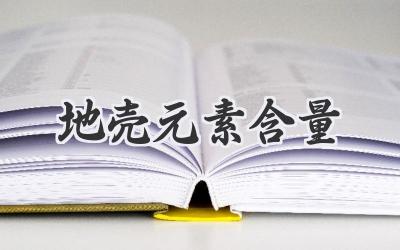 地壳元素含量